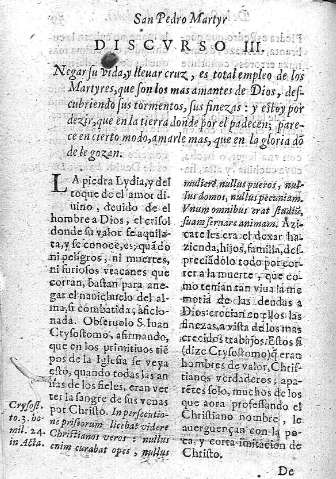 San Pedro Martyr
DISCVRSO III.
Negar su vida, y lleuar cruz, es total empleo de los
Martyres, que son los mas amantes de Dios, des-
cubriendo sus tormentos, sus finezas: y estoy por
dezir, que en la tierra donde por el padecen, pare-
ce en cierto modo, amarle mas, que en la gloria dō
de le gozan.
LA piedra Lydia, y del
toque de el amor di-
uino, deuido de el
hombre a Dios, el crisol
donde su valor se aquila-
ta, y se conoce, es, quādo
ni peligros, ni muertes,
ni furiosos vracanes que
corran, bastan para ane-
gar el nauichuelo del al-
ma, si combatida, aficio-
nada. Obseruolo S. Iuan
Crysostomo, afirmando,
que en los primitiuos tiē-
pos de la Iglesia se veya
esto, quando todas las an-
sias de los fieles, eran ver-
ter la sangre de sus venas
por Christo. In persecutio-
ne priscorum licebat videre
Christianos veros: nullus
enim curabat opes, nullus
Crysost-
to. 3. ho-
mil. 24.
in Acta.
mulierē, nullus pueros, nul-
lus domos, nullus pecuniam.
Vnum omnibus erat studiū,
suam seruare animam. Azi-
cates les era el dexar ha-
zienda, hijos, familia, des-
preciādolo todo por cor-
rer a la muerte, que co-
mo tenian tan viua la me
moria de las deudas a
Dios: crecian en ellos las
finezas, a vista de los mas
crecidos trabajos. Estos si
(dize Crysostomo) q̄ eran
hombres de valor, Chris-
tianos verdaderos; apa-
rēteś solo, muchos de los
que aora professando el
Christiano nombre, le
auerguençan con la po-
ca, y corta imitacion de
Christo.
De